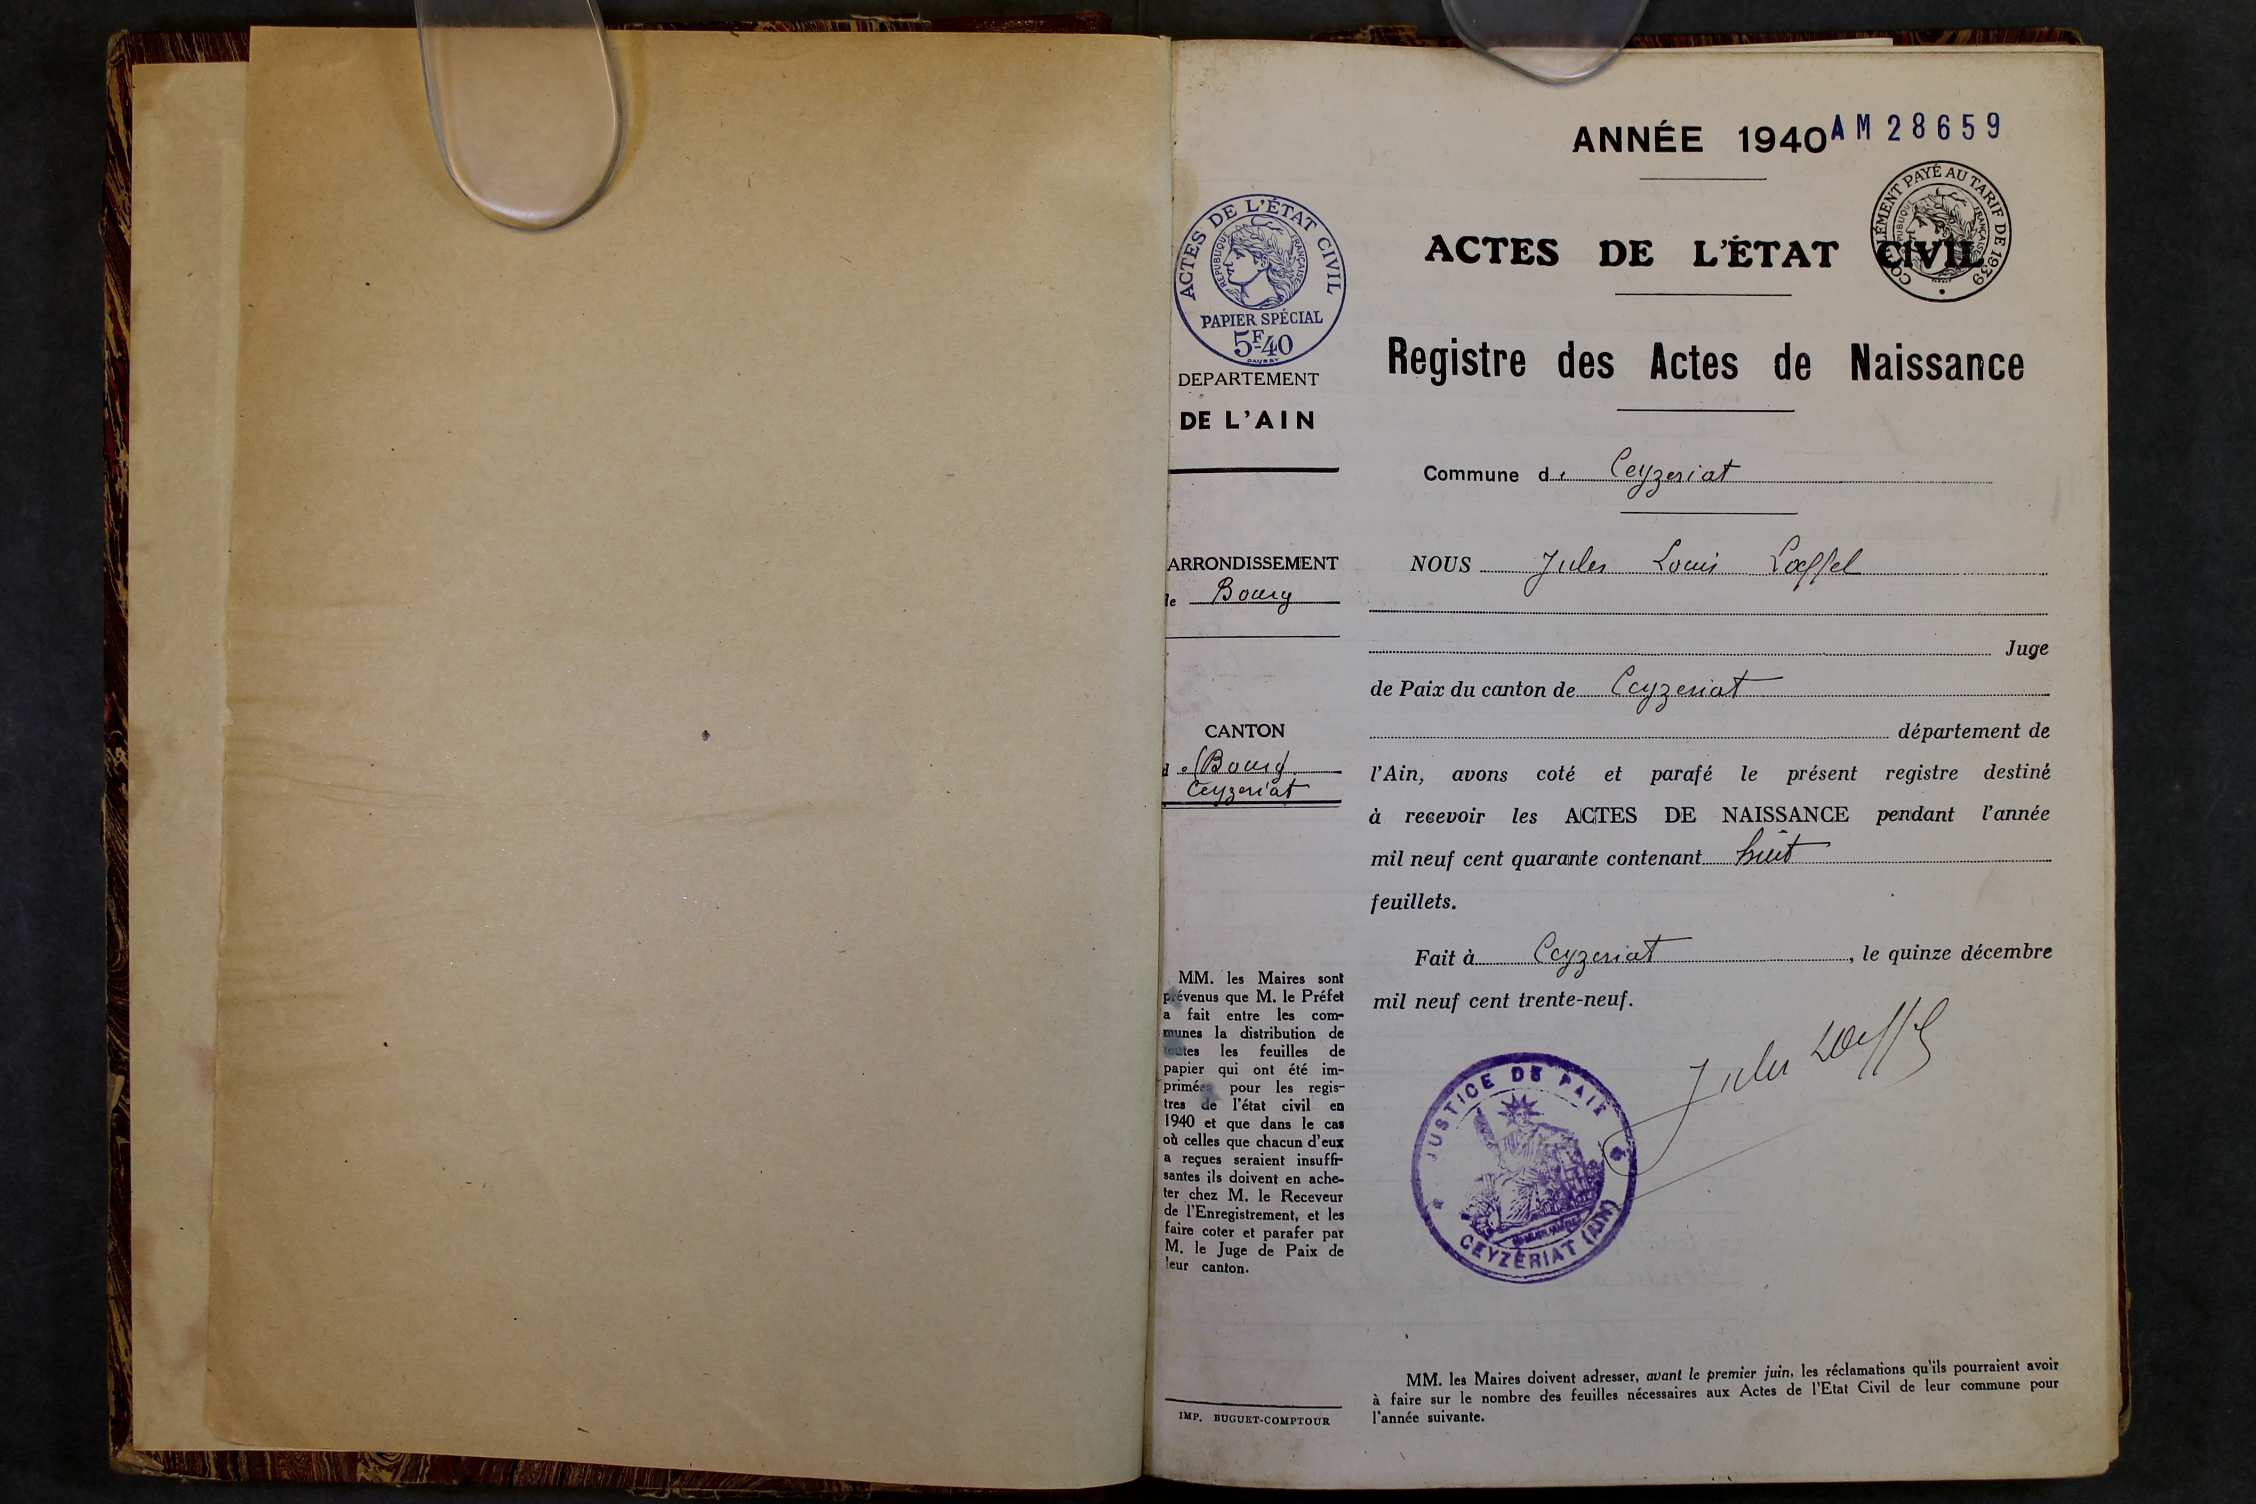 ANNÉE 1940
AM 28659
COMPLÉMENT PAYÉ AU TARIF DE 1939
RÉPUBLIQUE FRANÇAISE
ACTES DE L'ÉTAT CIVIL
Registre des Actes de Naissance
Commune de Ceyzeriat
NOUS Jules Louis Loeffel
Juge
de Paix du canton de Ceyzeriat
département de
l'Ain, avons coté et parafé le présent registre destiné
à recevoir les ACTES DE NAISSANCE pendant l'année
mil neuf cent quarante contenant huit
feuillets.
Fait à Ceyzeriat, le quinze décembre
mil neuf cent trente-neuf.
Jules Loeffel
JUSTICE DE PAIX
CEYZÉRIAT (AIN)
MM. les Maires doivent adresser, avant le premier juin, les réclamations qu'ils pourraient avoir
à faire sur le nombre des feuilles nécessaires aux Actes de l'Etat Civil de leur commune pour
l'année suivante.
ACTES DE L'ÉTAT CIVIL
RÉPUBLIQUE FRANÇAISE
PAPIER SPÉCIAL
5F-40
DAUSSY
DEPARTEMENT
DE L'AIN
ARRONDISSEMENT
de Bourg
CANTON
de Bourg
Ceyzeriat
MM. les Maires sont
prévenus que M. le Préfet
a fait entre les com-
munes la distribution de
toutes les feuilles de
papier qui ont été im-
primées pour les regis-
tres de l'état civil en
1940 et que dans le cas
où celles que chacun d'eux
a reçues seraient insuffi-
santes ils doivent en ache-
ter chez M. le Receveur
de l'Enregistrement, et les
faire coter et parafer par
M. le Juge de Paix de
leur canton.
IMP. BUGUET-COMPTOUR